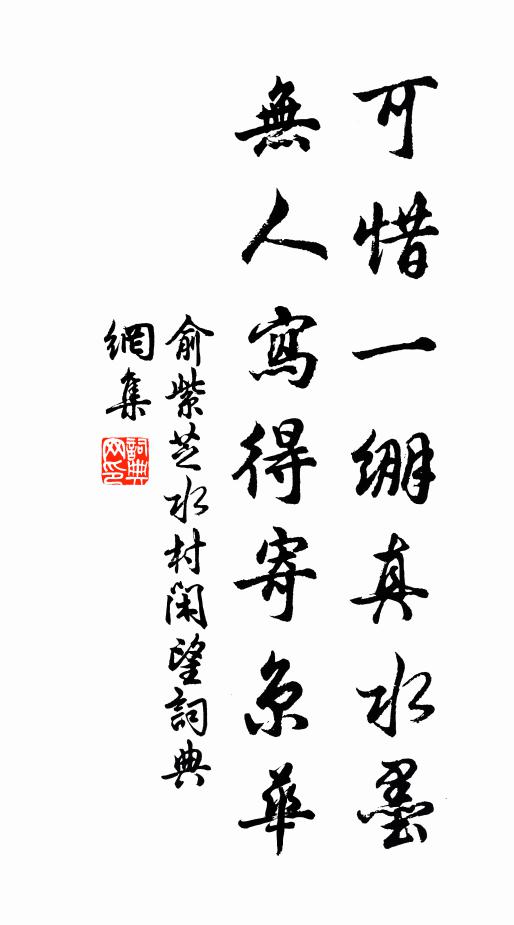 可惜一繃真水墨
無人寫得寄京華
俞紫芝水村閑望詞典
網集
詞典
网印